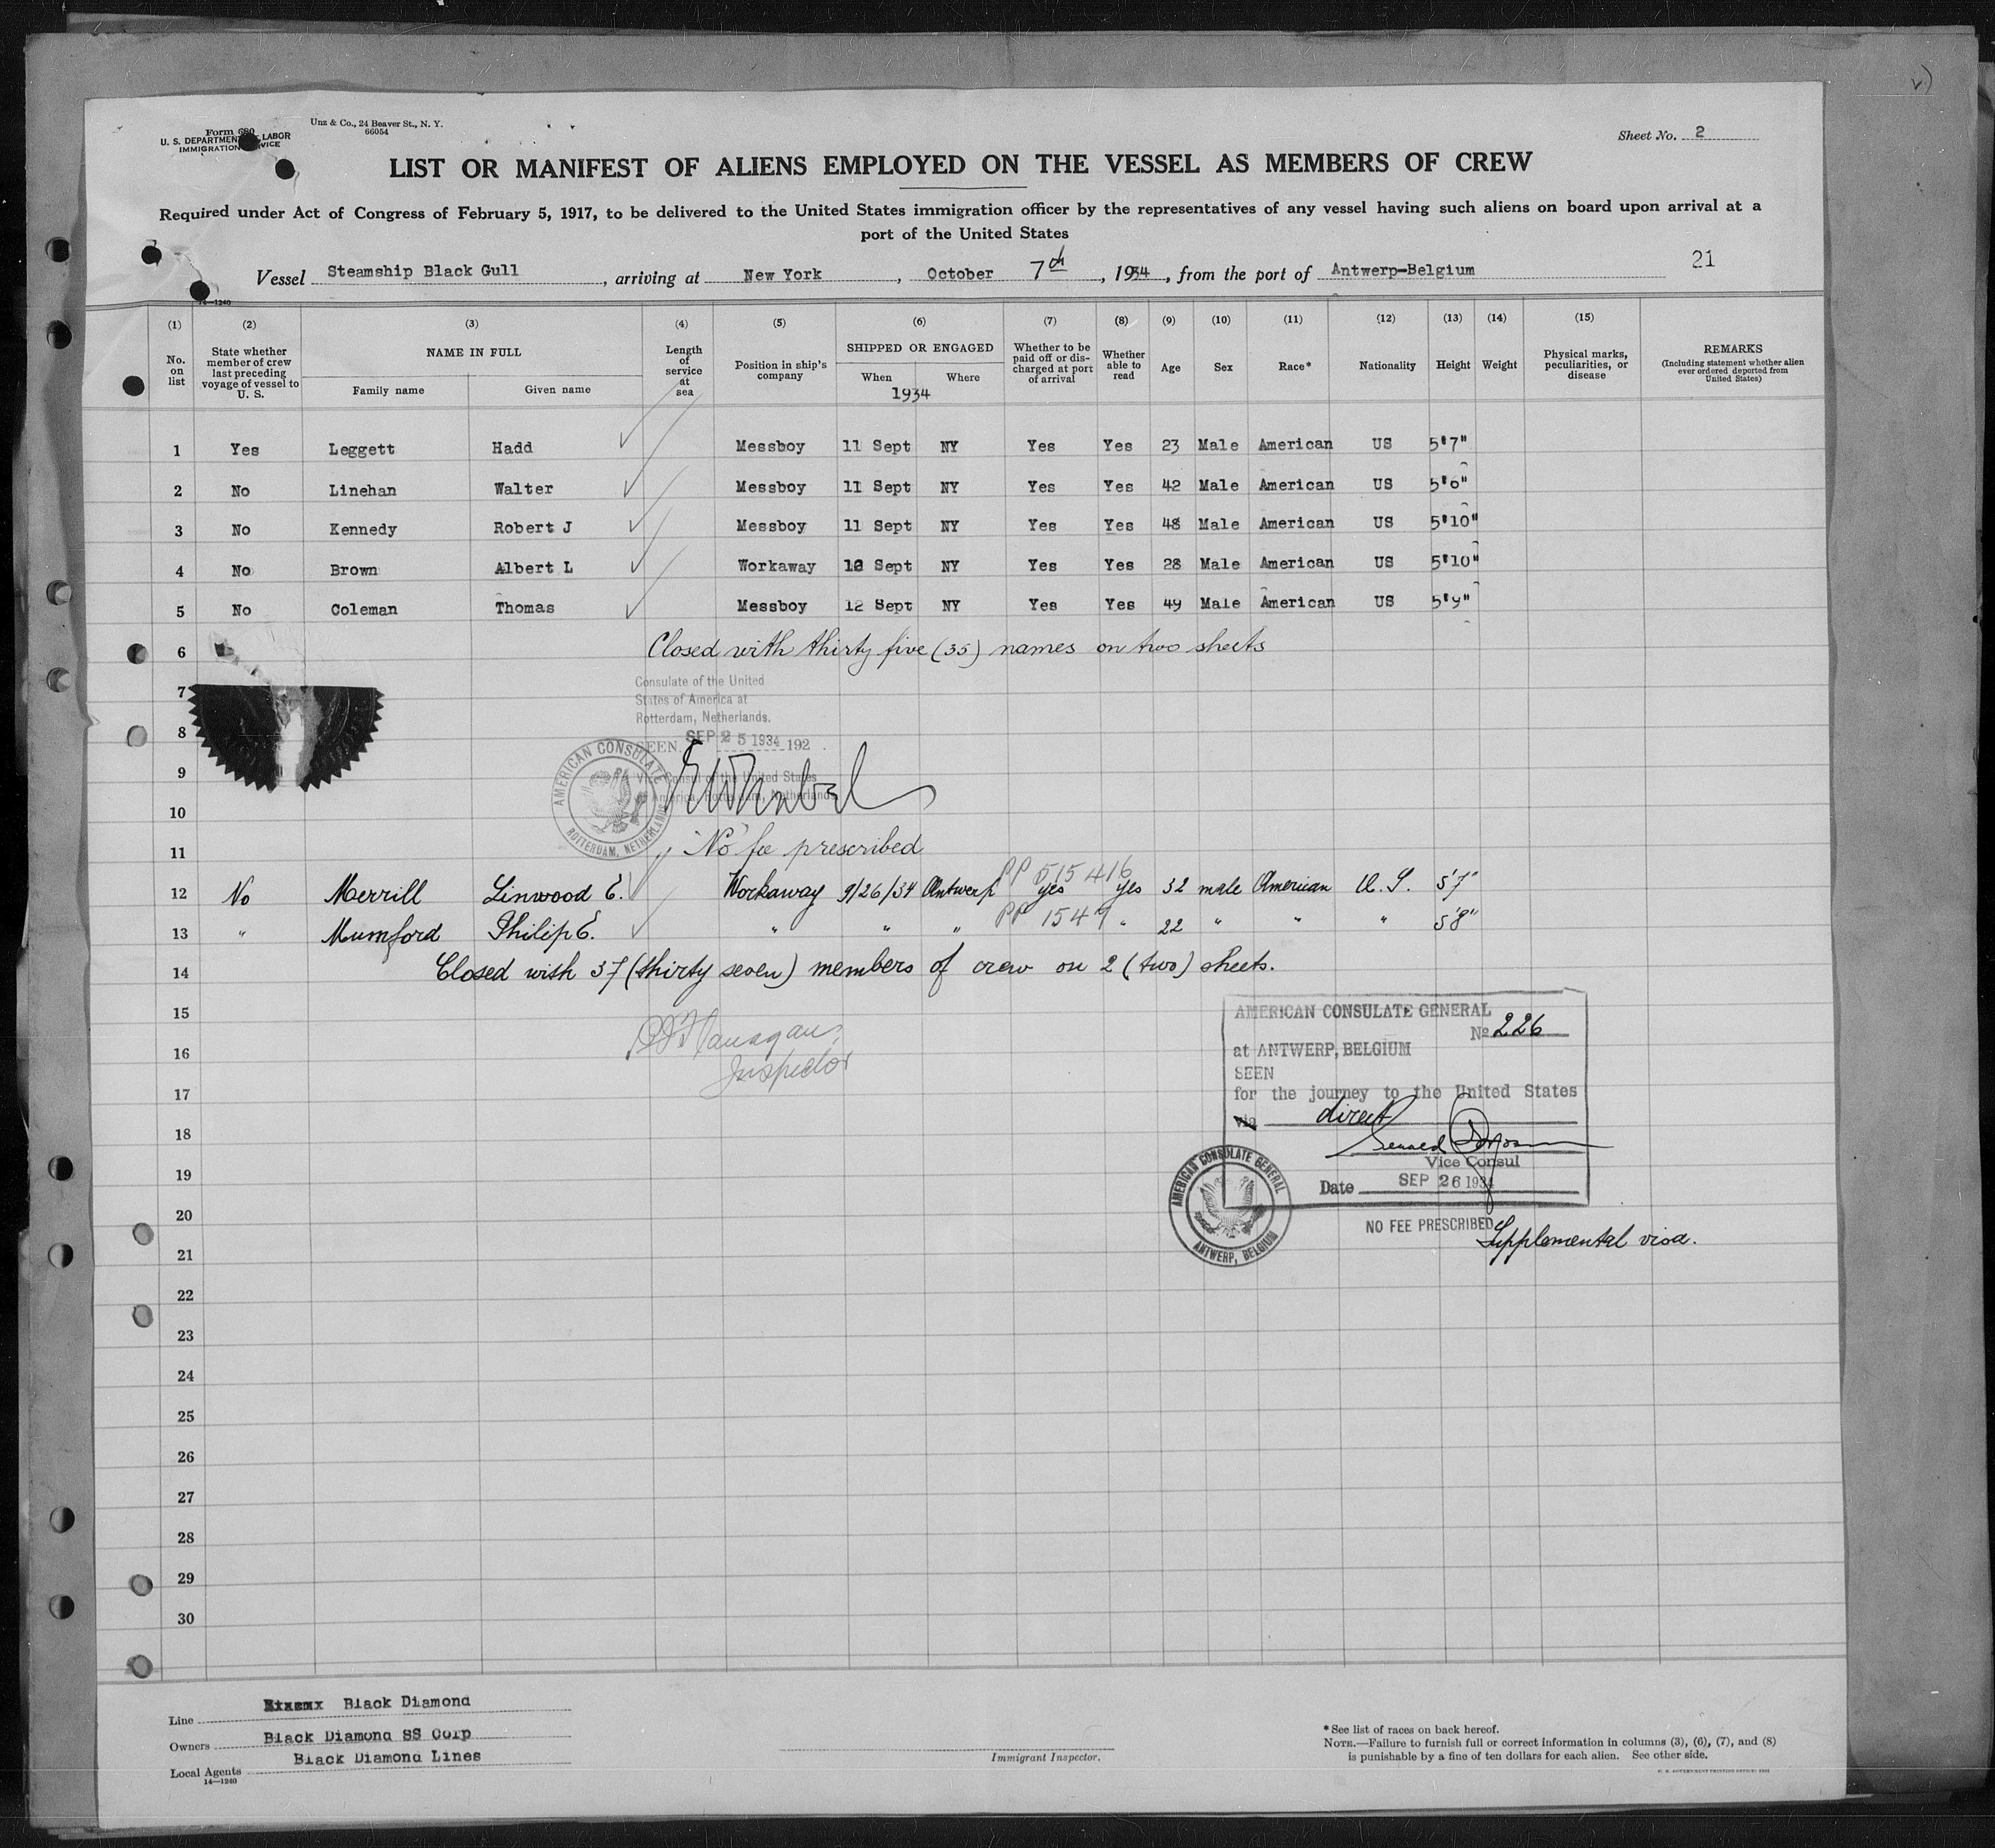 Form 680
U. S. DEPARTMENT LABOR
IMMIGRATION SERVICE
Unz & Co., 24 Beaver St., N. Y.
66054
Sheet No. 2
LIST OR MANIFEST OF ALIENS EMPLOYED ON THE VESSEL AS MEMBERS OF CREW
Required under Act of Congress of February 5, 1917, to be delivered to the United States immigration officer by the representatives of any vessel having such aliens on board upon arrival at a
port of the United States
21
Vessel Steamship Black Gull, arriving at New York, October 7th, 1934, from the port of Antwerp-Belgium
14—1240
(1) (2) (3) (4) (5) (6) (7) (8) (9) (10) (11) (12) (13) (14) (15)
No. on list
State whether member of crew last preceding voyage of vessel to U. S.
NAME IN FULL
Family name Given name
Length of service at sea
Position in ship's company
SHIPPED OR ENGAGED
When Where
1934
Whether to be paid off or discharged at port of arrival
Whether able to read
Age
Sex
Race*
Nationality
Height
Weight
Physical marks, peculiarities, or disease
REMARKS
(Including statement whether alien ever ordered deported from United States)
1 Yes Leggett Hadd Messboy 11 Sept NY Yes Yes 23 Male American US 5'7"
2 No Linehan Walter Messboy 11 Sept NY Yes Yes 42 Male American US 5'6"
3 No Kennedy Robert J Messboy 11 Sept NY Yes Yes 48 Male American US 5'10"
4 No Brown Albert L Workaway 12 Sept NY Yes Yes 28 Male American US 5'10"
5 No Coleman Thomas Messboy 12 Sept NY Yes Yes 49 Male American US 5'9"
6 Closed with thirty five (35) names on two sheets
Consulate of the United
States of America at
Rotterdam, Netherlands.
7
8
SEEN. SEP 25 1934 192 .
Vice Consul of the United States
of America, Rotterdam, Netherlands
AMERICAN CONSULATE
ROTTERDAM, NETHERLANDS
9
10
11 "No" fee prescribed
PP 515416
12 No Merrill Linwood E. Workaway 9/26/34 Antwerp yes yes 32 male American U. S. 5'7"
PP 1549
13 " Mumford Philip E. " " " " 22 " " " 5'8"
14 Closed with 37 (thirty seven) members of crew on 2 (two) sheets.
15
Flanagan,
Inspector
16
17
18
19
20
21
22
23
24
25
26
27
28
29
30
AMERICAN CONSULATE GENERAL
No 226
at ANTWERP, BELGIUM
SEEN
for the journey to the United States
via direct
Vice Consul
Date SEP 26 1934
AMERICAN CONSULATE GENERAL
ANTWERP, BELGIUM
NO FEE PRESCRIBED
Supplemental visa.
Line Black Diamond
Owners Black Diamond SS Corp
Local Agents Black Diamond Lines
14—1240
Immigrant Inspector.
*See list of races on back hereof.
NOTE.—Failure to furnish full or correct information in columns (3), (6), (7), and (8)
is punishable by a fine of ten dollars for each alien. See other side.